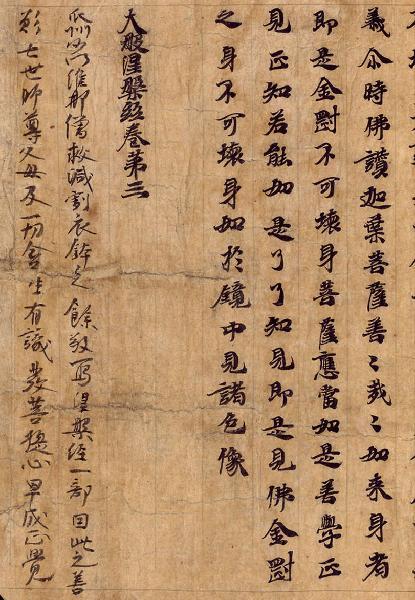 義尒時佛讚迦葉菩薩善〻哉〻如来身者
即是金剛不可壞身菩薩應當如是善學正
見正知若能如是了了知見即是見佛金剛
之身不可壞身如於鏡中見諸色像
大般涅槃經卷第三
瓜州沙門維那僧 減割衣鉢之餘敬寫涅槃經一部因此之善
願七世師尊父母及一切含生有識發菩提心早成正覺